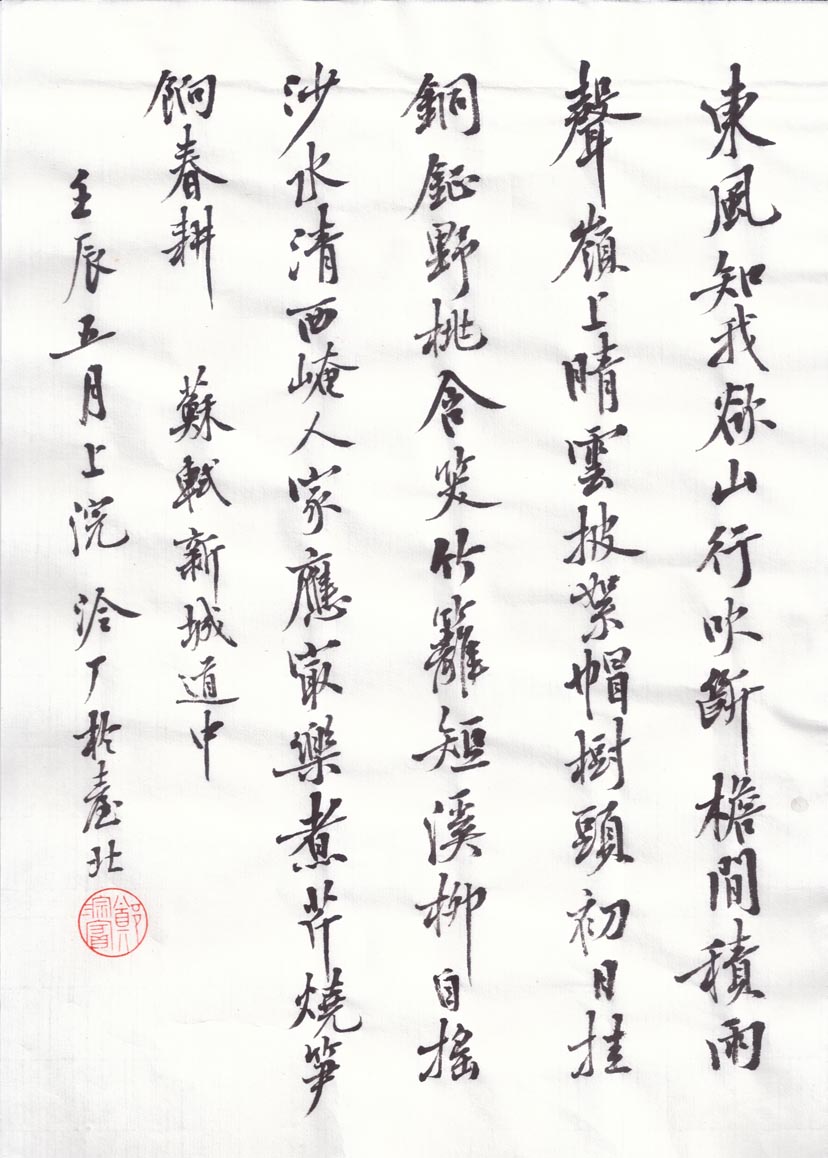 東風知我欲山行吹斷檐間積雨
聲嶺上晴雲披絮帽樹頭初日挂
銅鉦野桃含笑竹籬短溪柳自搖
沙水清西崦人家應最樂煮芹燒筍
餉春耕 蘇軾新城道中
壬辰五月上浣 於臺北